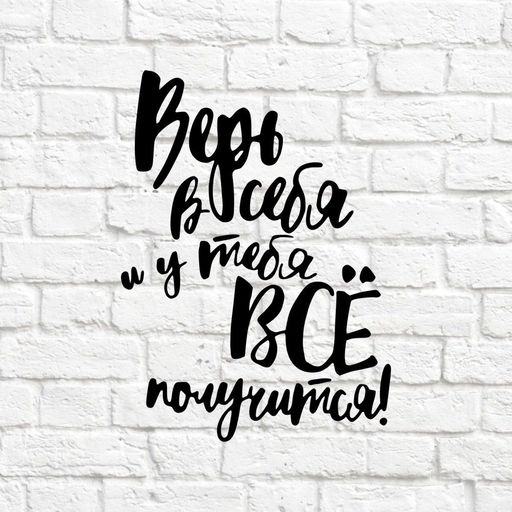 Верь
в себя
и у тебя
ВСЁ
получится!